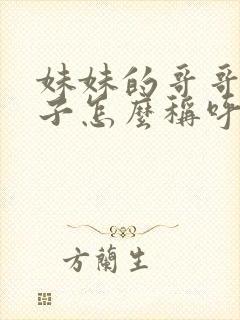 妹妹的哥哥
子怎麼稱呼
方蘭生